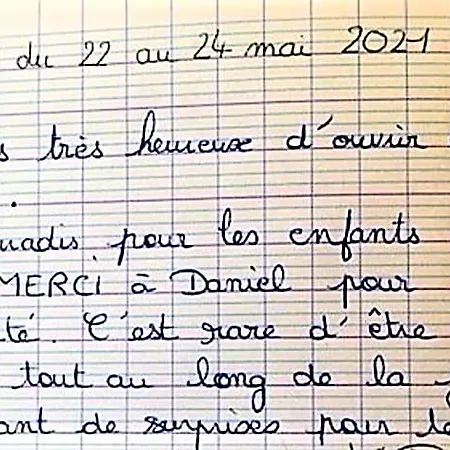 du 22 au 24 mai 2021
s très heureuse d'ouvrir
.
uadis pour les enfants
MERCI à Daniel pour
té. C'est rare d'être
tout au long de la
ant de surprises pour